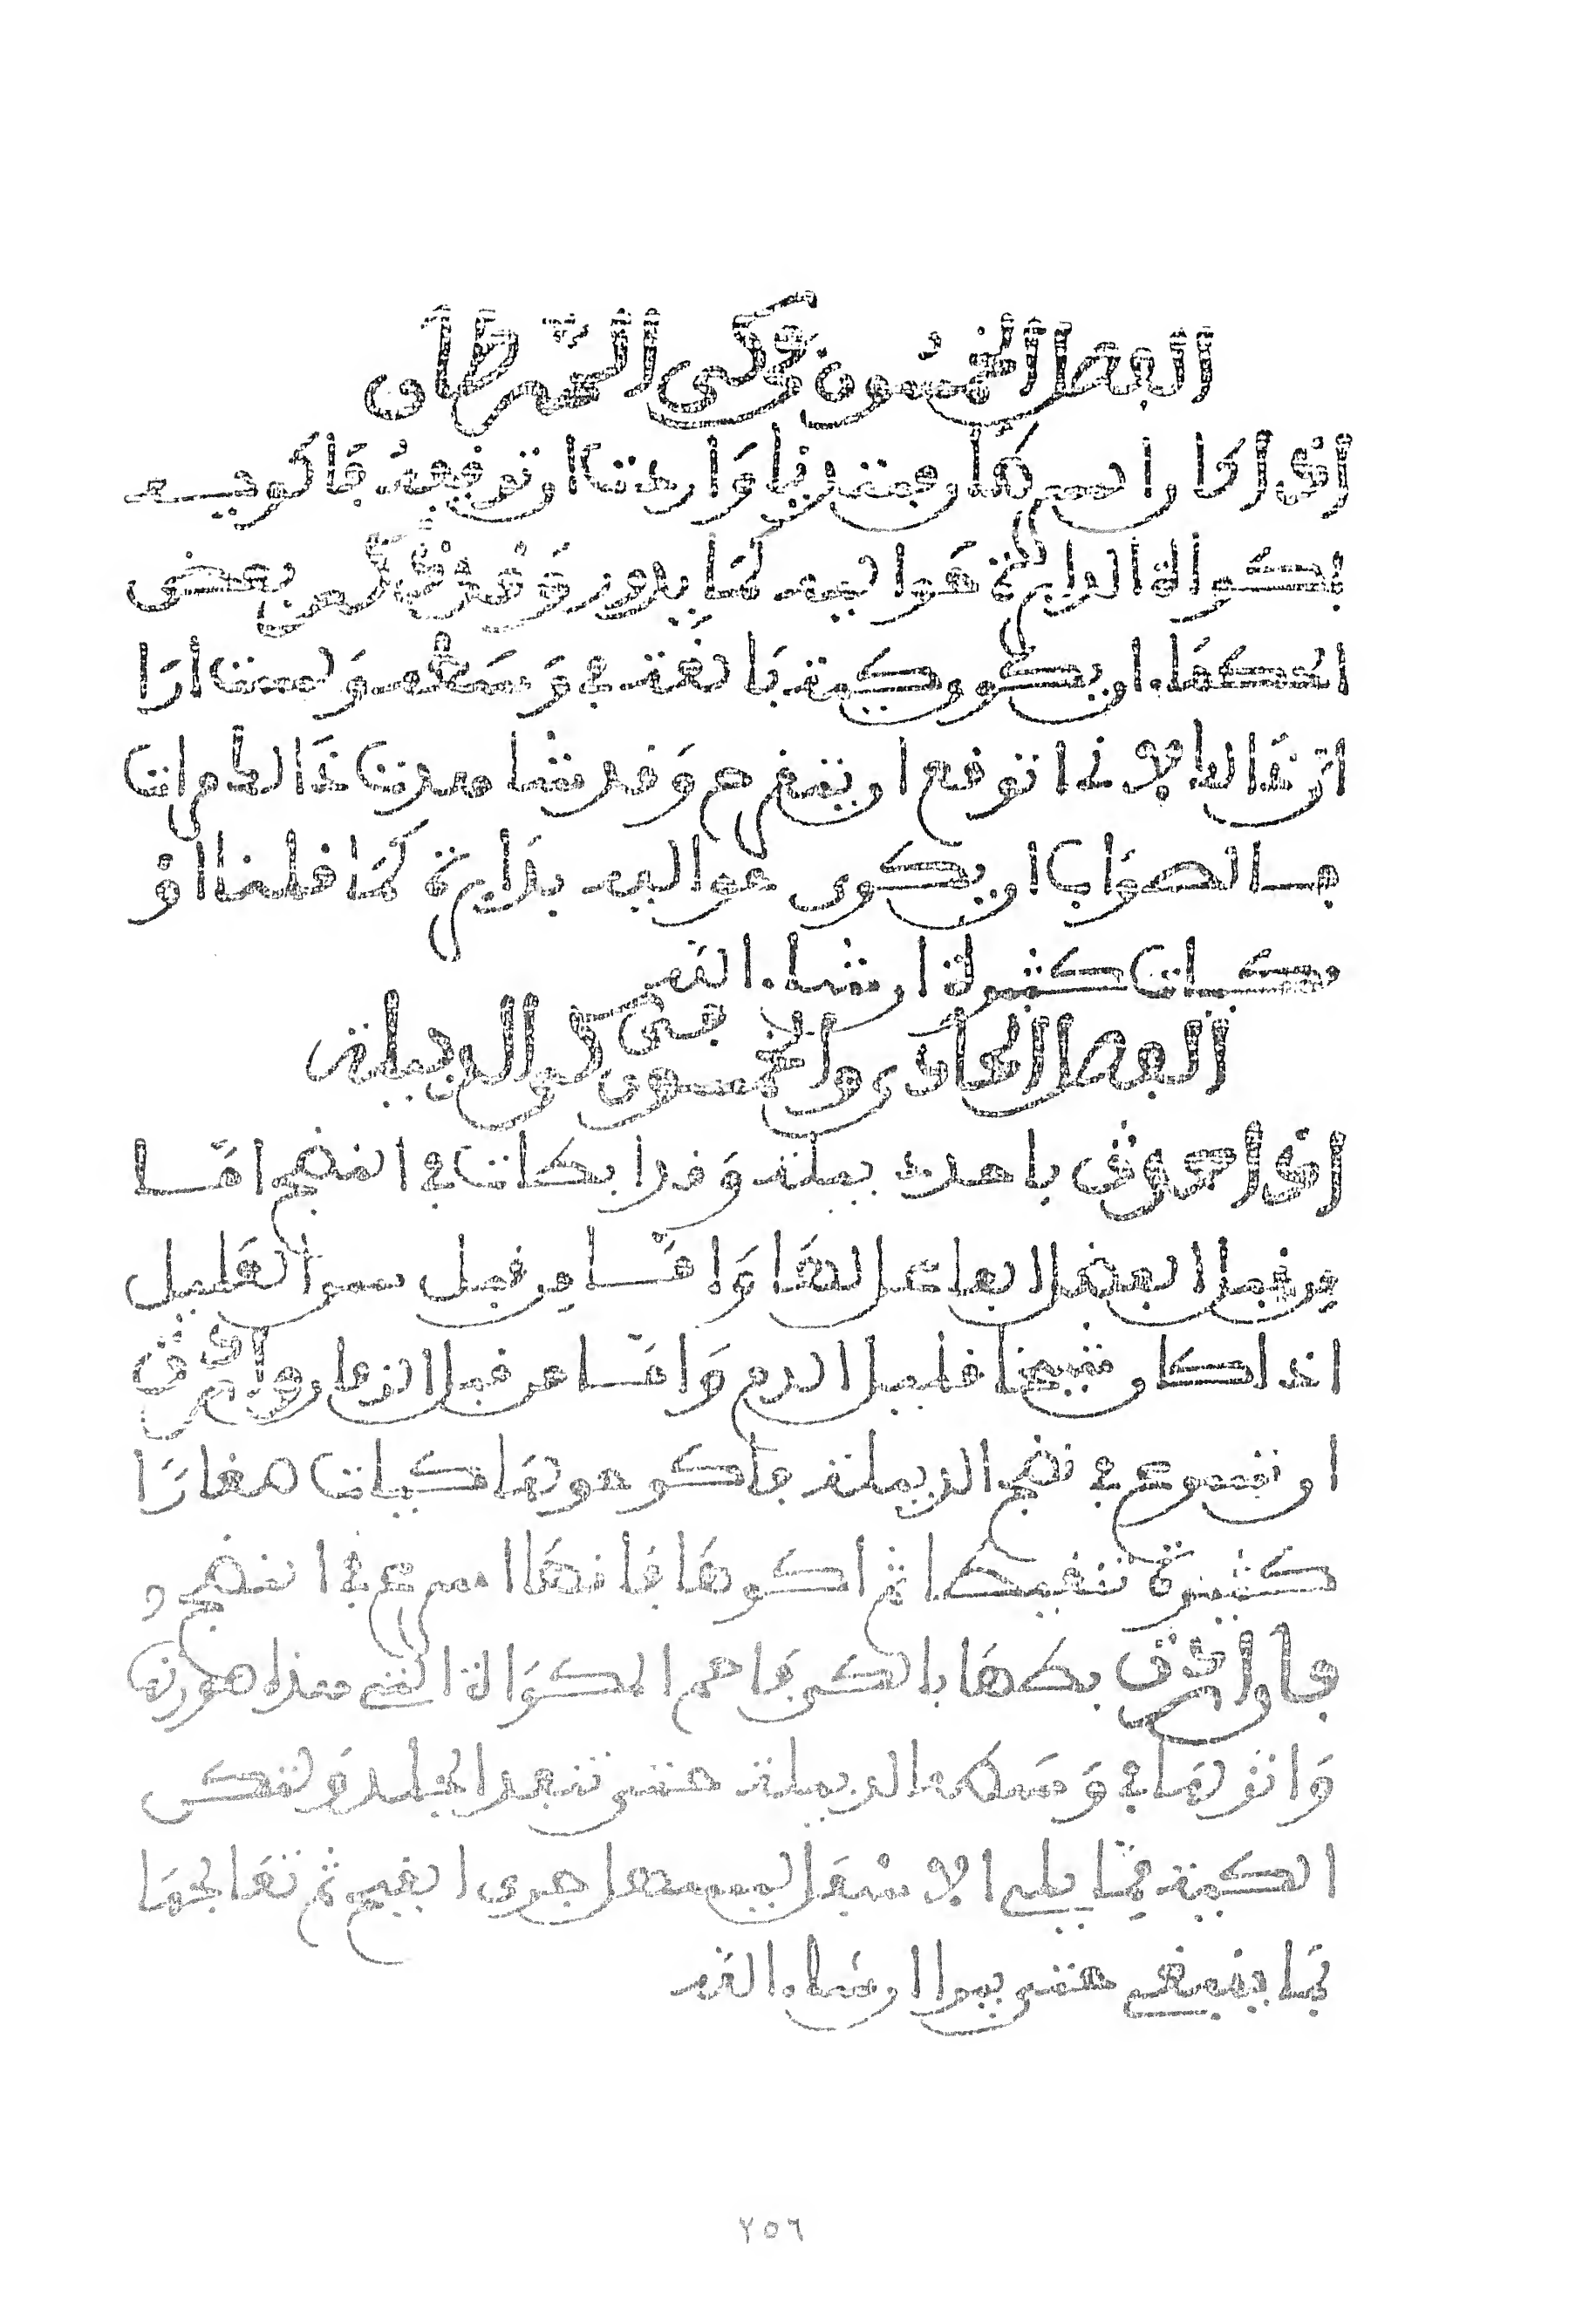 الفصل الخمسون في كي السرطان
اذا كان السرطان مبتديا واردت ان توقفه فاكويه
بمكواة الدايرة حواليه كما يدور وقد ذكر بعض
الحكماء ان يكوى كية بالغة في وسطه ولست ارا
انا ذلك لاني اتوقع ان يتقرح وقد شاهدت ذلك مرات
والصواب ان يكوى حواليه بدايرة كما قلنا او
بكيات كثيرة ان شاء الله
الفصل الحادي والخمسون في كي الدبيلة
اذا حدث باحد دبيلة وقد ابطات في النضج اما
من قبل الفضل الفاعل لها واما من قبل سن العليل
اذا كان شيخا قليل الدم واما من قبل الزمان واردت
ان تسرع في نضج الدبيلة فاكو حولها كيات صغارا
كثيرة تنقيطا ثم اتركها فانها تسرع في النضج
فان اردت بطها بالكي فاحم المكواة التي هذه صورتها
وانزلها في وسط الدبيلة حتى تنفذ الجلد ولتكن
الكية مما يلي الاسفل ليسهل جري القيح ثم تعالجها
بما ينبغي حتى يبرا ان شاء الله
٢٥٦